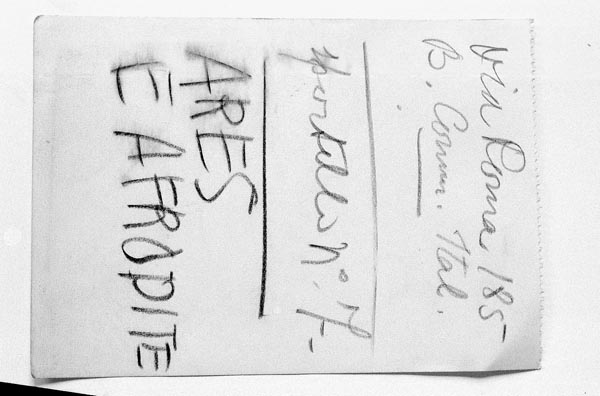 Via Roma, 185
B. Comm. Ital.
sportello No. 7-
ARES
E AFRODITE